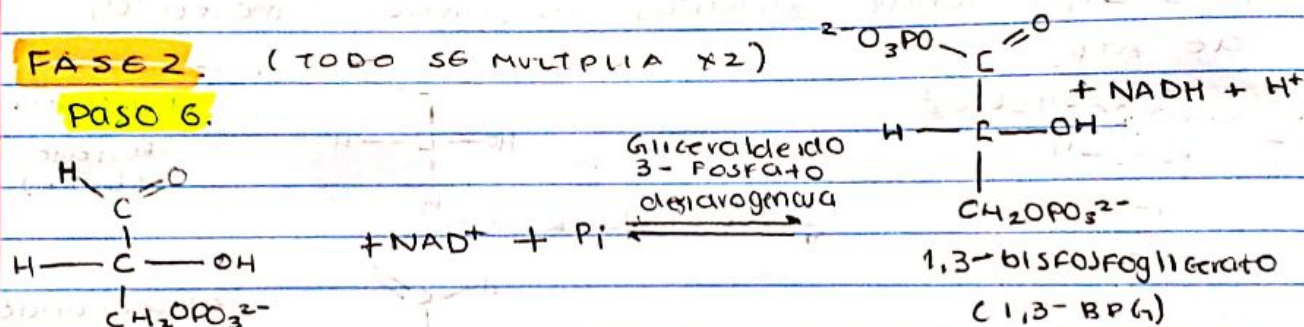 FASE 2. (TODO SE MULTPLIA x2)
PASO 6.
H C =O
H — C — OH
CH₂OPO₃²⁻
+NAD⁺ + Pi
Gliceraldeido
3 - Fosfato
²⁻O₃PO C =O
H — C — OH
CH₂OPO₃²⁻
+ NADH + H⁺
1,3-bisfosfoglicerato
(1,3-BPG)